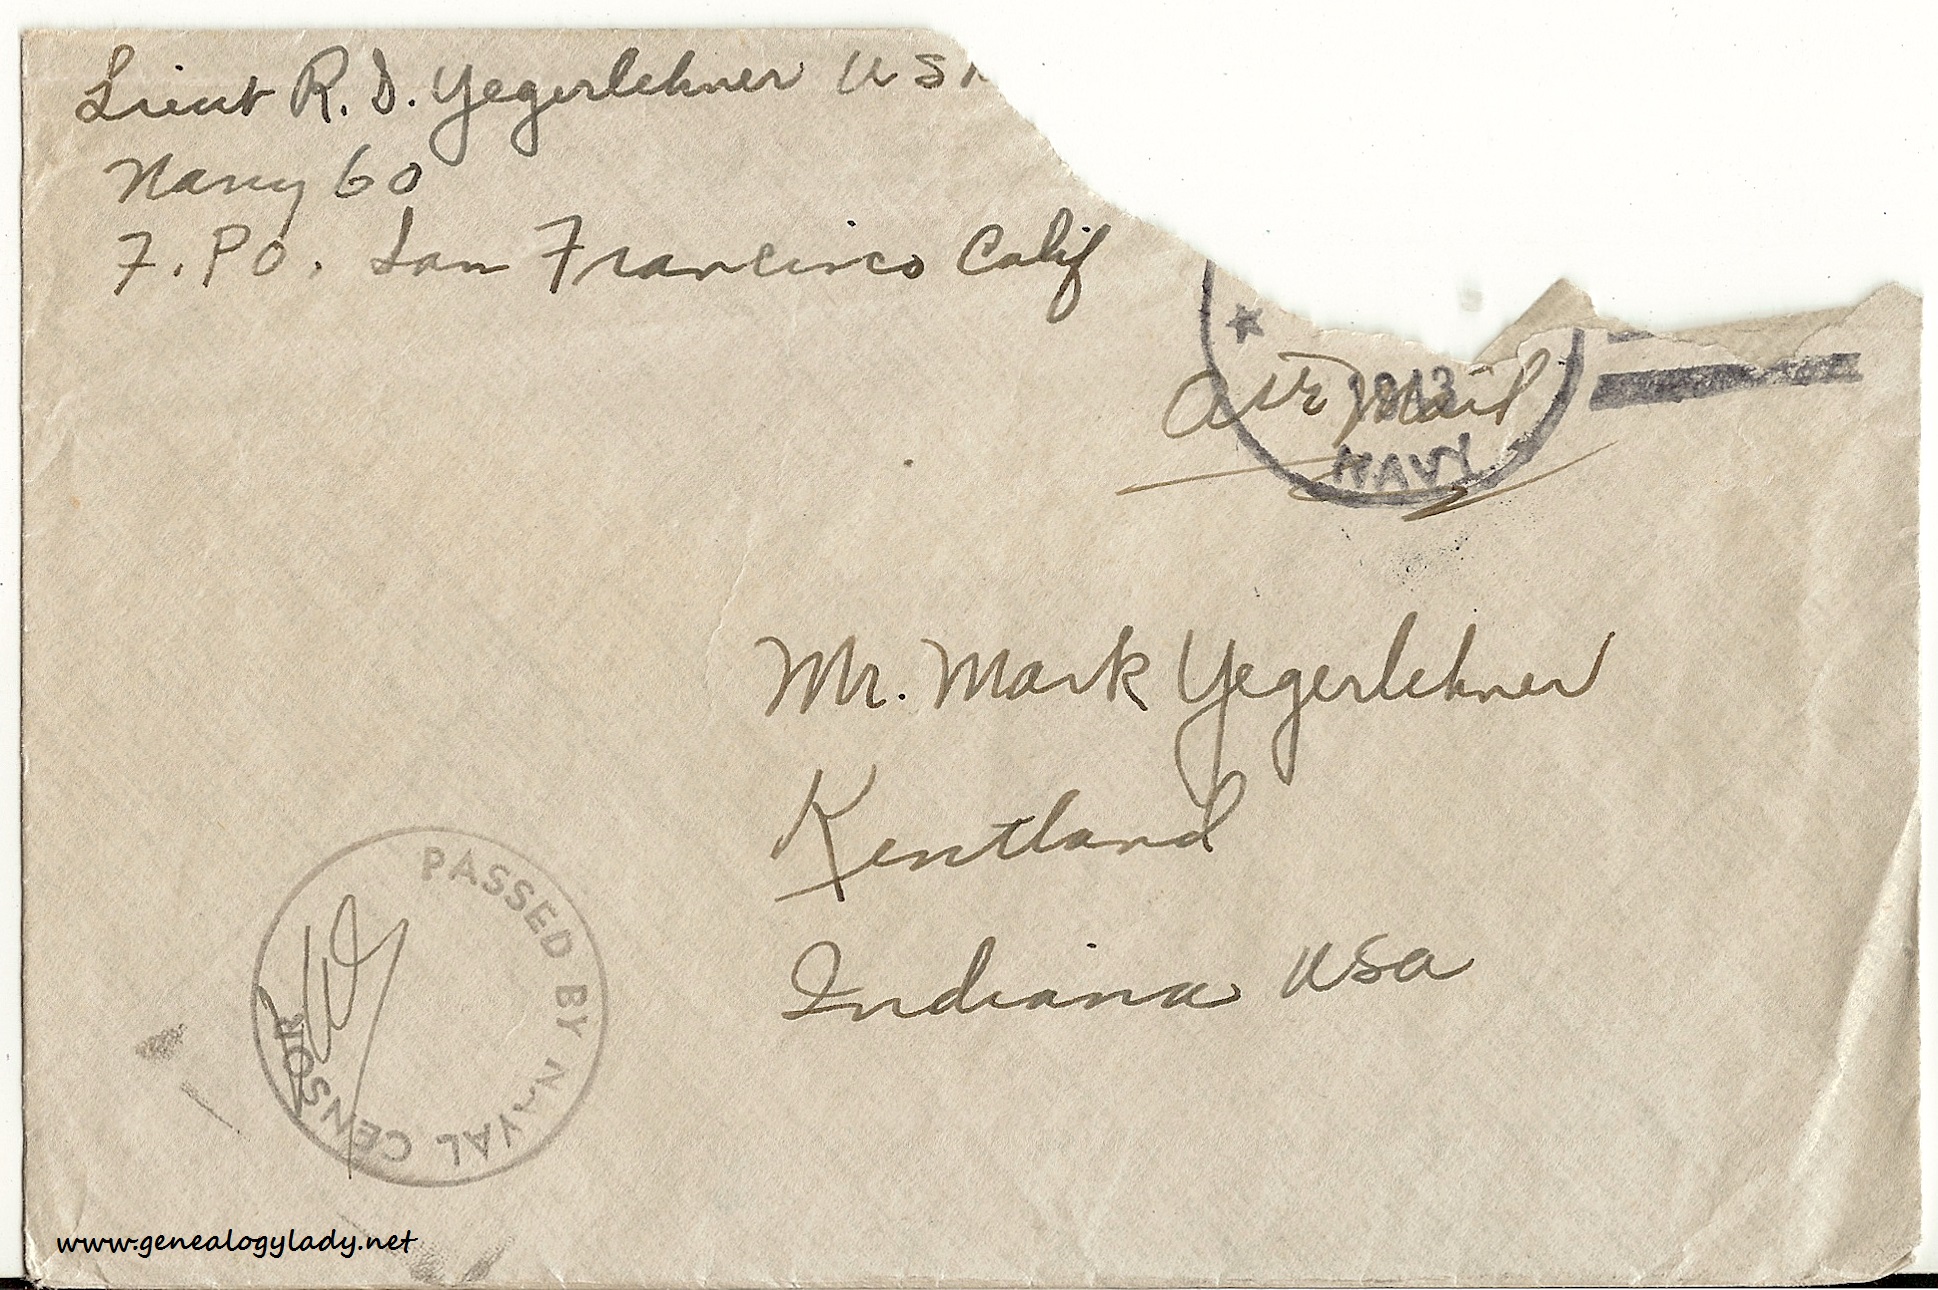 Lieut R. D. Yegerlehner USN
Navy 60
F. PO. San Francisco Calif
Air Mail
1943
NAVY
Mr. Mark Yegerlehner
Kentland
Indiana USA
PASSED BY NAVAL CENSOR
www.genealogylady.net